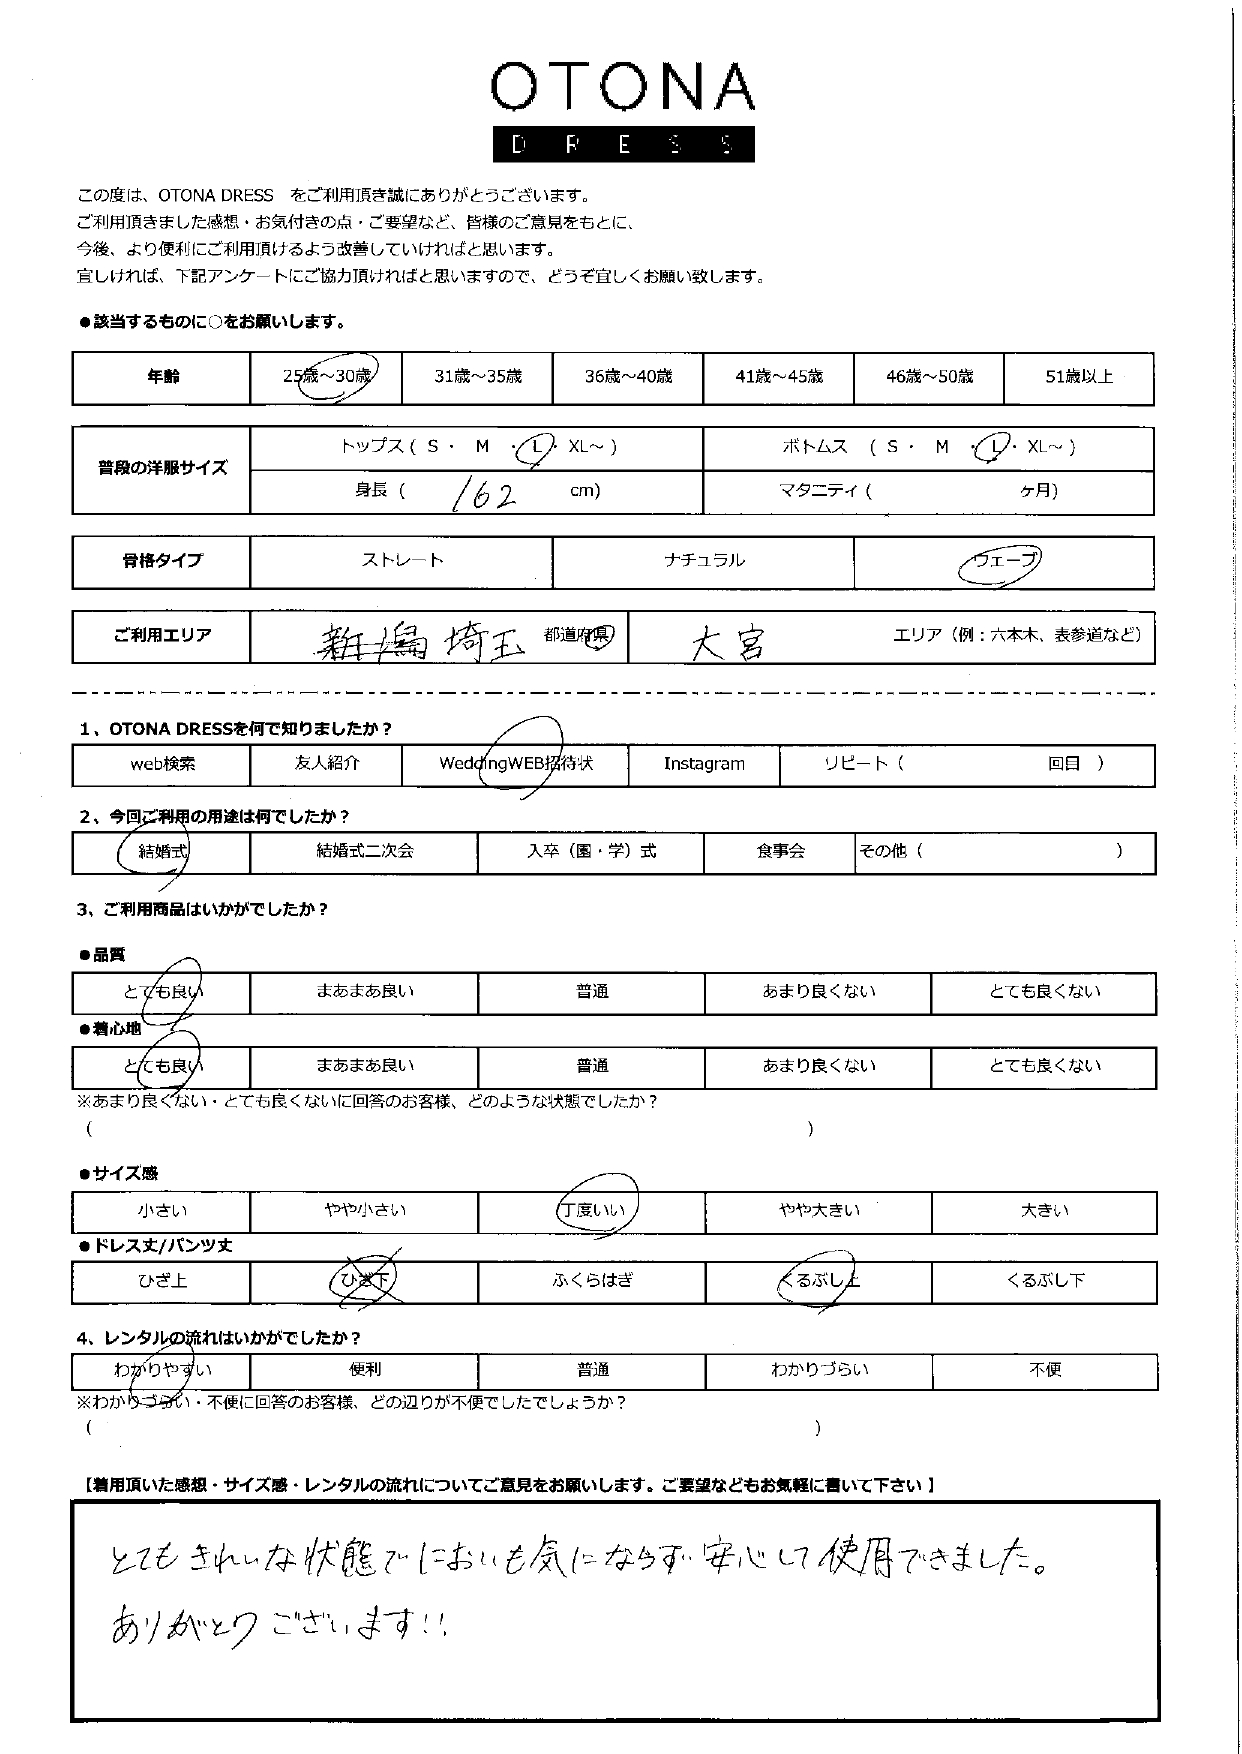 OTONA
DRESS
この度は、OTONA DRESS　をご利用頂き誠にありがとうございます。
ご利用頂きました感想・お気付きの点・ご要望など、皆様のご意見をもとに、
今後、より便利にご利用頂けるよう改善していければと思います。
宜しければ、下記アンケートにご協力頂ければと思いますので、どうぞ宜しくお願い致します。
●該当するものに○をお願いします。
年齢 25歳～30歳 31歳～35歳 36歳～40歳 41歳～45歳 46歳～50歳 51歳以上
普段の洋服サイズ トップス ( S ・ M ・ L ・ XL～ ) ボトムス ( S ・ M ・ L ・ XL～ )
身長 ( 162 cm) マタニティ ( ヶ月)
骨格タイプ ストレート ナチュラル ウェーブ
ご利用エリア 新潟 埼玉 都道府県 大宮 エリア（例：六本木、表参道など）
1、OTONA DRESSを何で知りましたか？
web検索 友人紹介 WeddingWEB招待状 Instagram リピート（ 回目 ）
2、今回ご利用の用途は何でしたか？
結婚式 結婚式二次会 入卒（園・学）式 食事会 その他（ ）
3、ご利用商品はいかがでしたか？
●品質
とても良い まあまあ良い 普通 あまり良くない とても良くない
●着心地
とても良い まあまあ良い 普通 あまり良くない とても良くない
※あまり良くない・とても良くないに回答のお客様、どのような状態でしたか？
( )
●サイズ感
小さい やや小さい 丁度いい やや大きい 大きい
●ドレス丈/パンツ丈
ひざ上 ひざ下 ふくらはぎ くるぶし上 くるぶし下
4、レンタルの流れはいかがでしたか？
わかりやすい 便利 普通 わかりづらい 不便
※わかりづらい・不便に回答のお客様、どの辺りが不便でしたでしょうか？
( )
【着用頂いた感想・サイズ感・レンタルの流れについてご意見をお願いします。ご要望などもお気軽に書いて下さい 】
とてもきれいな状態でにおいも気にならず安心して使用できました。
ありがとうございます!!